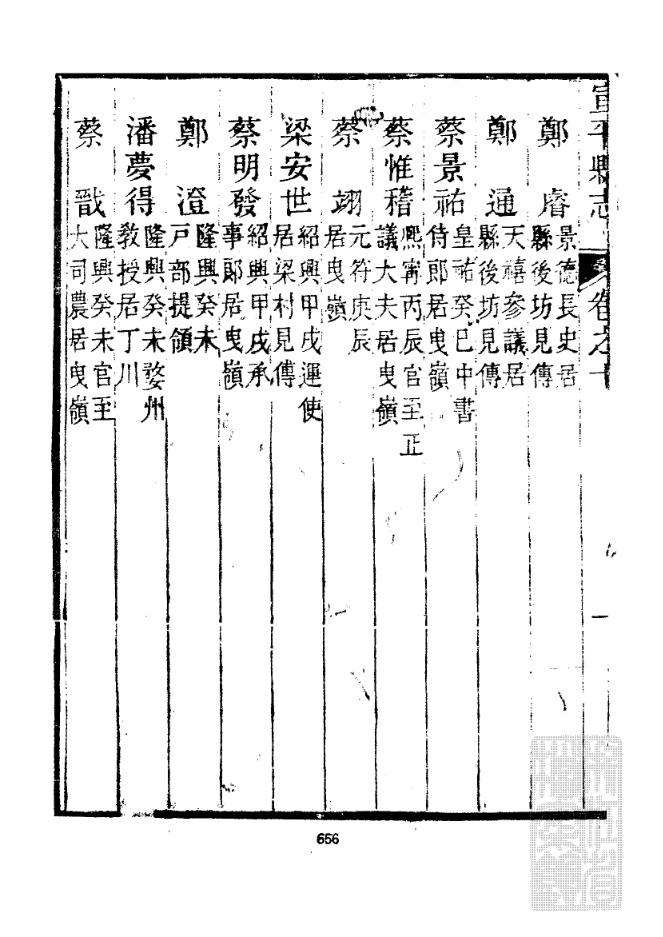 宣平縣志 卷之十 一
鄭睿 景德長史居縣後坊見傳
鄭通 天禧參議居縣後坊見傳
蔡景祐 皇祐癸巳中書侍郎居曳嶺
蔡惟稽 熙寧丙辰官至正議大夫居曳嶺
蔡翊 元符庚辰居曳嶺
梁安世 紹興甲戌運使居梁村見傳
蔡明發 紹興甲戌承事郎居曳嶺
鄭澄 隆興癸未戶部提領
潘夢得 隆興癸未婺州教授居丁川
蔡戩 隆興癸未官至大司農居曳嶺
656